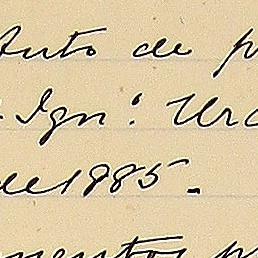 Auto de p
Ign: Urc
de 1985.
mentos p